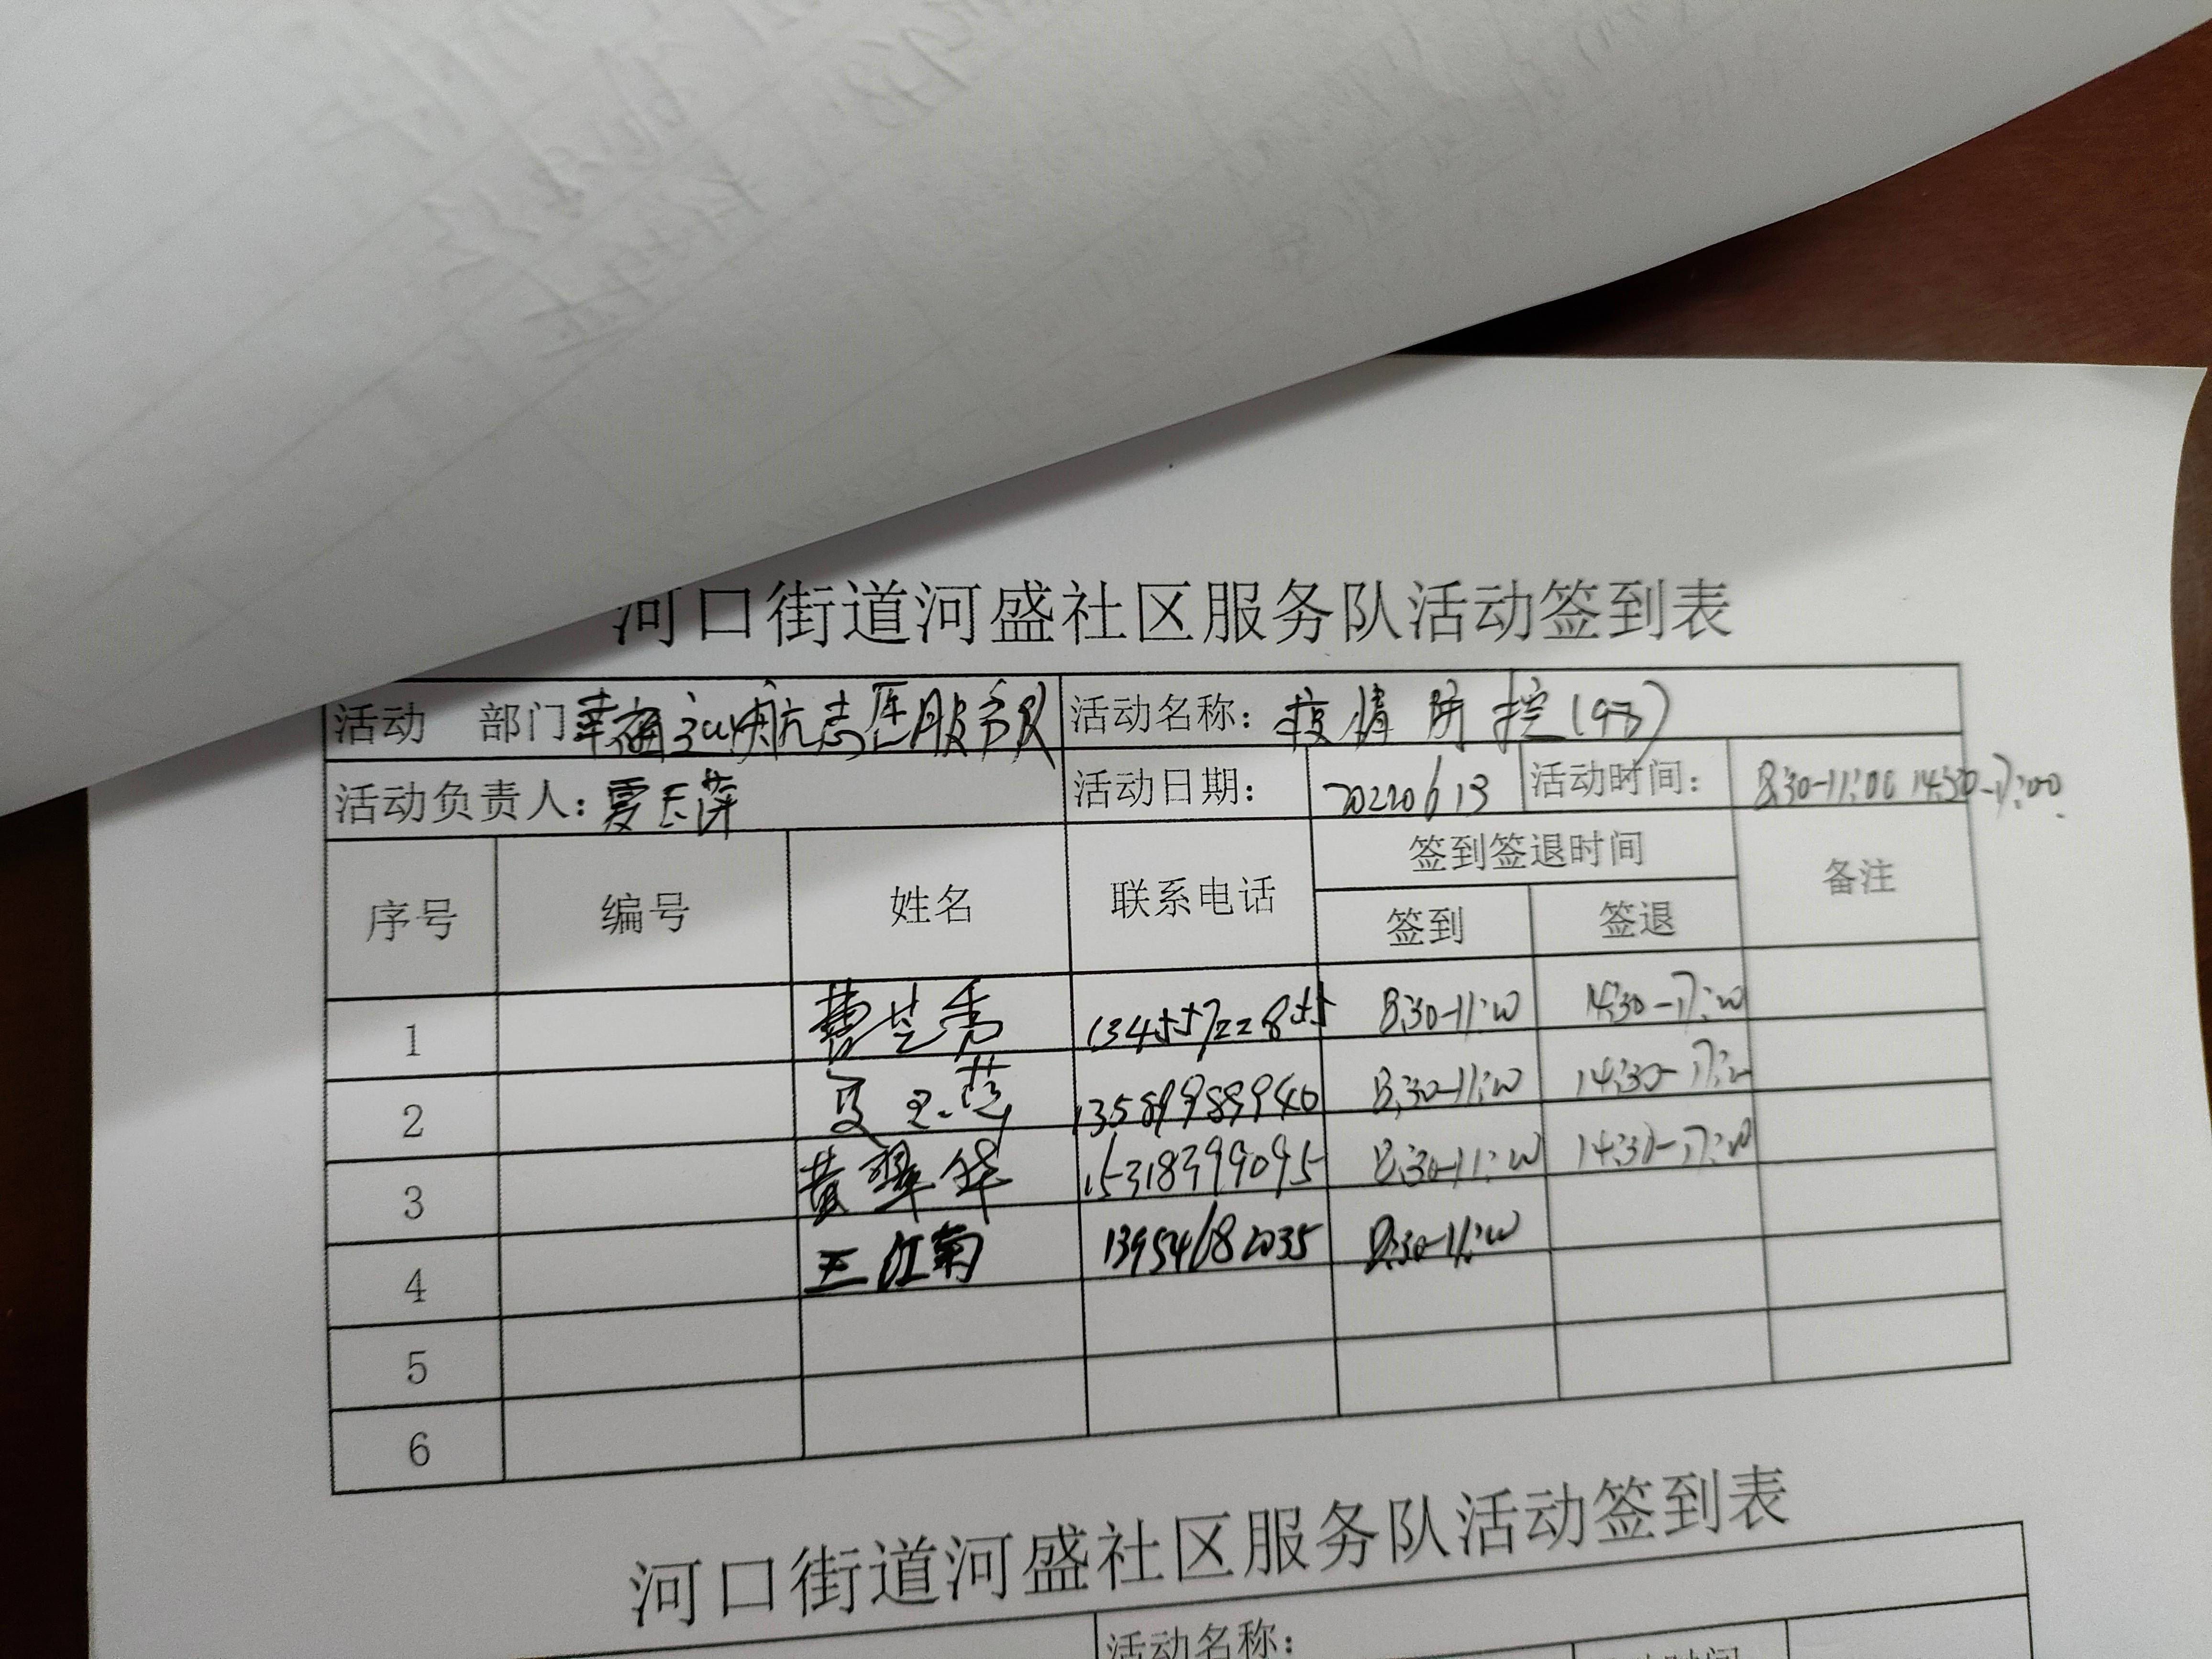 河口街道河盛社区服务队活动签到表
活动 部门 幸福远航志愿服务队 活动名称: 疫情防控
活动负责人: 夏玉萍 活动日期: 20220613 活动时间: 8:30-11:00 14:30-17:00
序号 编号 姓名 联系电话 签到签退时间 备注
签到 签退
1 曹芝秀 13455722855 8:30-11:00 14:30-17:00
2 13589989940 8:30-11:00 14:30-17:00
3 黄翠华 15318399095 8:30-11:00 14:30-17:00
4 王江南 13954682035 8:30-11:00
5
6
河口街道河盛社区服务队活动签到表
活动名称: